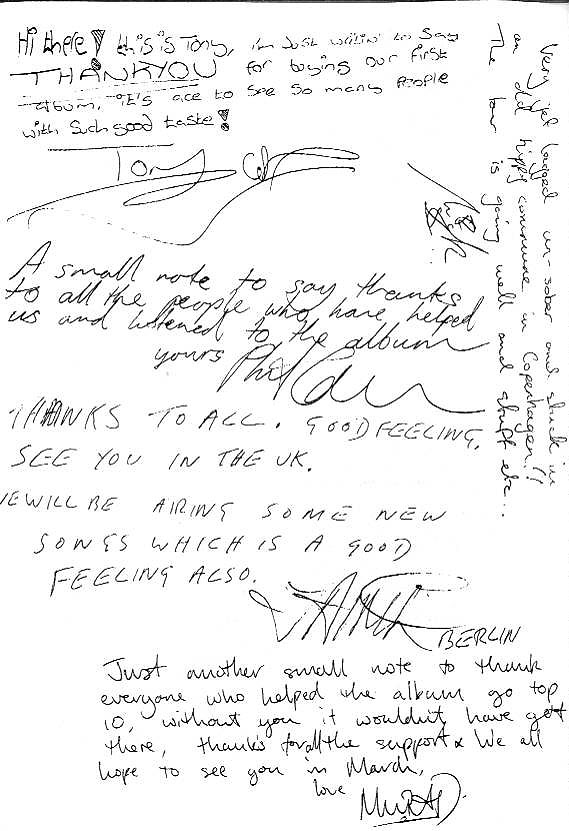 Hi there! this is Tony, i'm Just writin' to Say
THANKYOU for buying our first
album, it's ace to see so many people
with such good taste!
Tony
A small note to say thanks
to all the people who have helped
us and listened to the album
yours Phil
THANKS TO ALL. GOOD FEELING.
SEE YOU IN THE UK.
WE WILL BE AIRING SOME NEW
SONGS WHICH IS A GOOD
FEELING ALSO.
BERLIN
Just another small note to thank
everyone who helped the album go top
10, without you it wouldn't have got
there, thanks for all the support x We all
hope to see you in March,
love
MURAD.
Very jet lagged un-sober and stuck in
an old hippy commune in Copenhagen!!
The tour is going well and stuff etc...